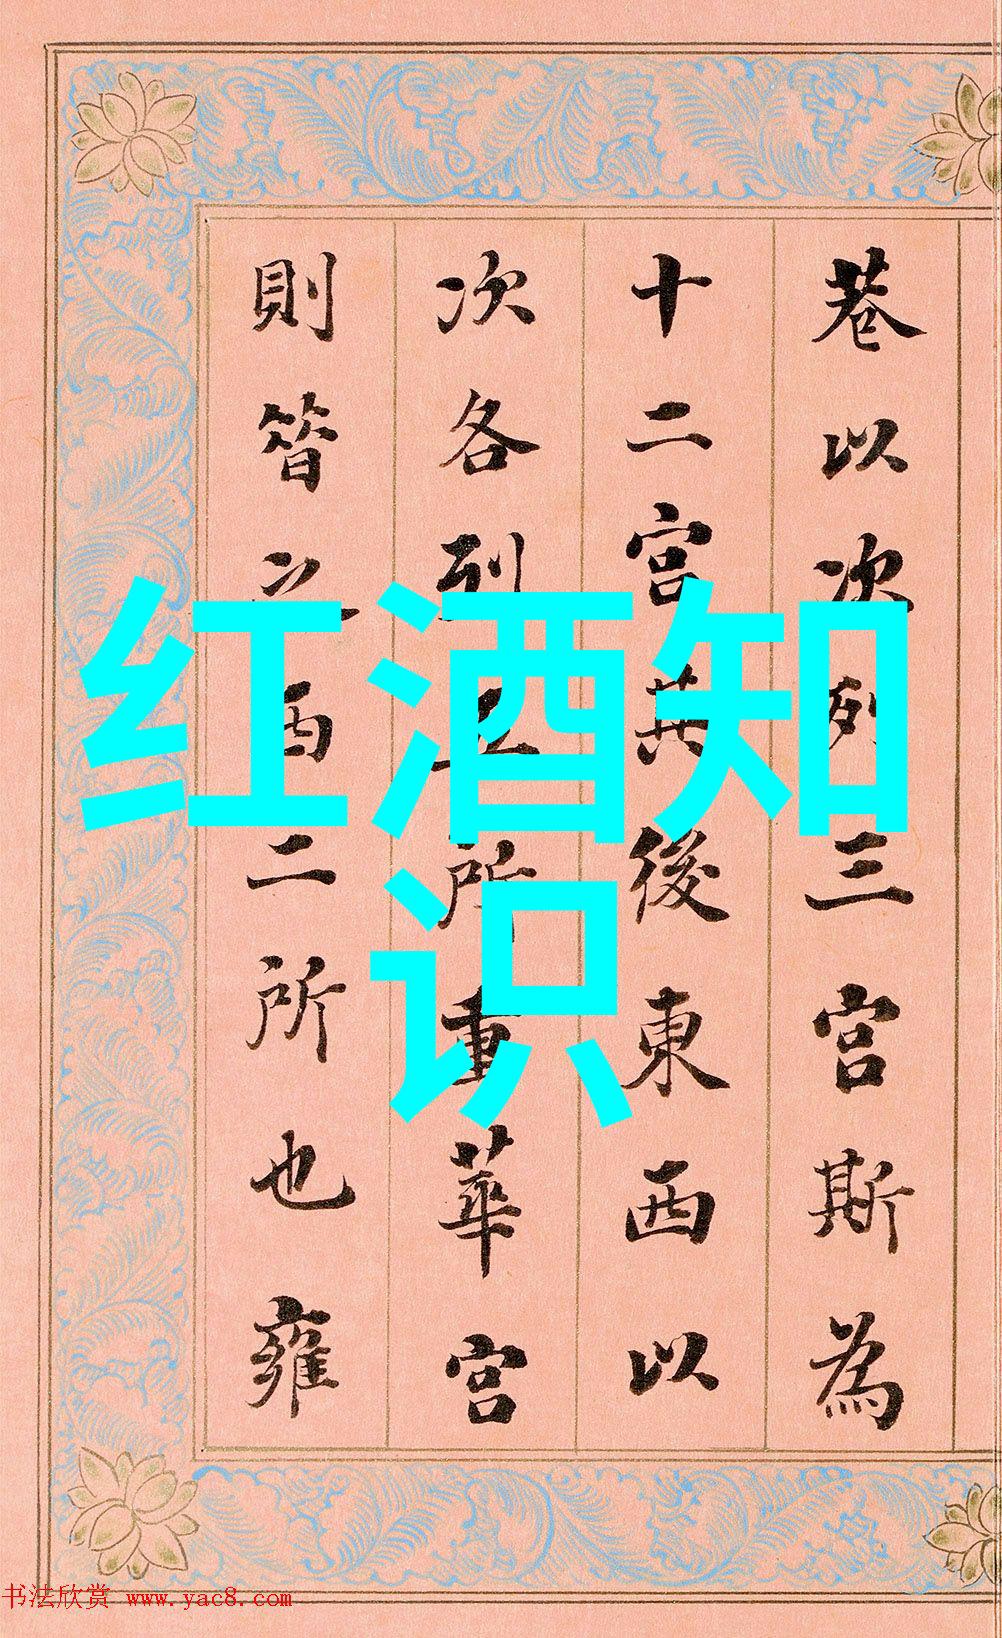 红酒知
识
巷以次列三宮斯為
十二宮共後東西以
次各列五所重華宮
則昔之西二所也雍
书法欣赏 www.yac8.com